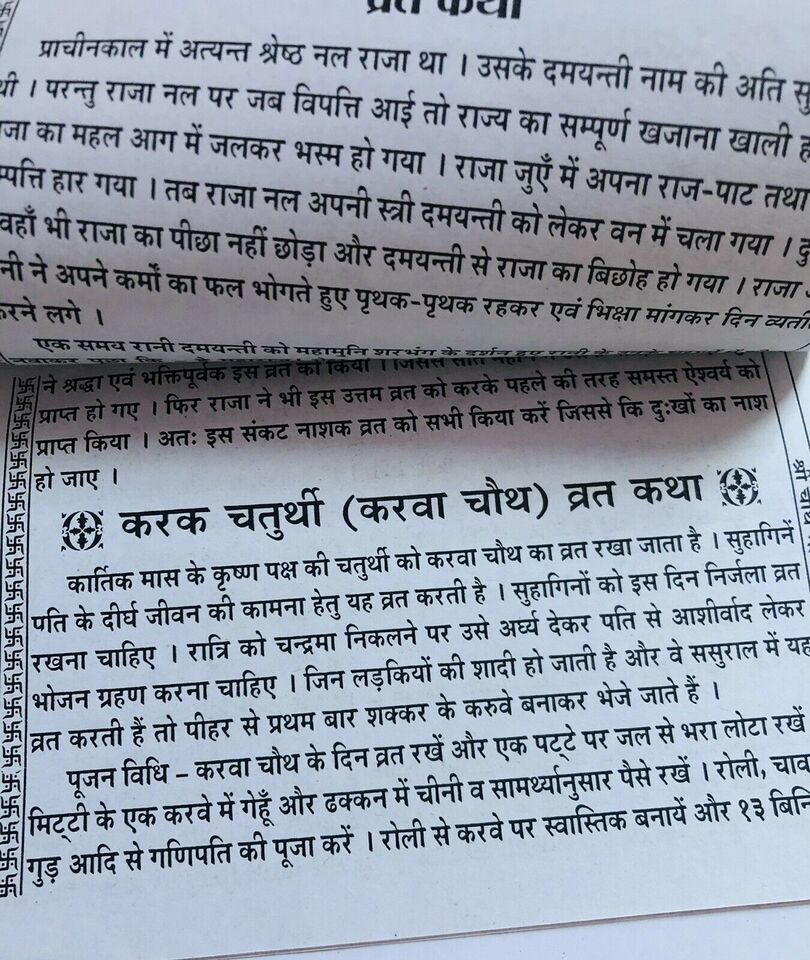 व्रत कथा
प्राचीनकाल में अत्यन्त श्रेष्ठ नल राजा था । उसके दमयन्ती नाम की अति
थी । परन्तु राजा नल पर जब विपत्ति आई तो राज्य का सम्पूर्ण खजाना खाली
का महल आग में जलकर भस्म हो गया । राजा जुएँ में अपना राज-पाट तथा
हार गया । तब राजा नल अपनी स्त्री दमयन्ती को लेकर वन में चला गया ।
वहाँ भी राजा का पीछा नहीं छोड़ा और दमयन्ती से राजा का बिछोह हो गया । राजा
ने अपने कर्मों का फल भोगते हुए पृथक-पृथक रहकर एवं भिक्षा मांगकर दिन
लगे ।
एक समय रानी दमयन्ती को महामुनि शरभंग के दर्शन हुए
ने श्रद्धा एवं भक्तिपूर्वक इस व्रत को किया ।
प्राप्त हो गए । फिर राजा ने भी इस उत्तम व्रत को करके पहले की तरह समस्त ऐश्वर्य को
प्राप्त किया । अतः इस संकट नाशक व्रत को सभी किया करें जिससे कि दुःखों का नाश
हो जाए ।
करक चतुर्थी (करवा चौथ) व्रत कथा
कार्तिक मास के कृष्ण पक्ष की चतुर्थी को करवा चौथ का व्रत रखा जाता है । सुहागिनें
पति के दीर्घ जीवन की कामना हेतु यह व्रत करती है । सुहागिनों को इस दिन निर्जला व्रत
रखना चाहिए । रात्रि को चन्द्रमा निकलने पर उसे अर्घ्य देकर पति से आशीर्वाद लेकर
भोजन ग्रहण करना चाहिए । जिन लड़कियों की शादी हो जाती है और वे ससुराल में यह
व्रत करती हैं तो पीहर से प्रथम बार शक्कर के करुवे बनाकर भेजे जाते हैं ।
पूजन विधि – करवा चौथ के दिन व्रत रखें और एक पट्टे पर जल से भरा लोटा रखें
मिट्टी के एक करवे में गेहूँ और ढक्कन में चीनी व सामर्थ्यानुसार पैसे रखें । रोली,
गुड़ आदि से गणिपति की पूजा करें । रोली से करवे पर स्वास्तिक बनायें और १३